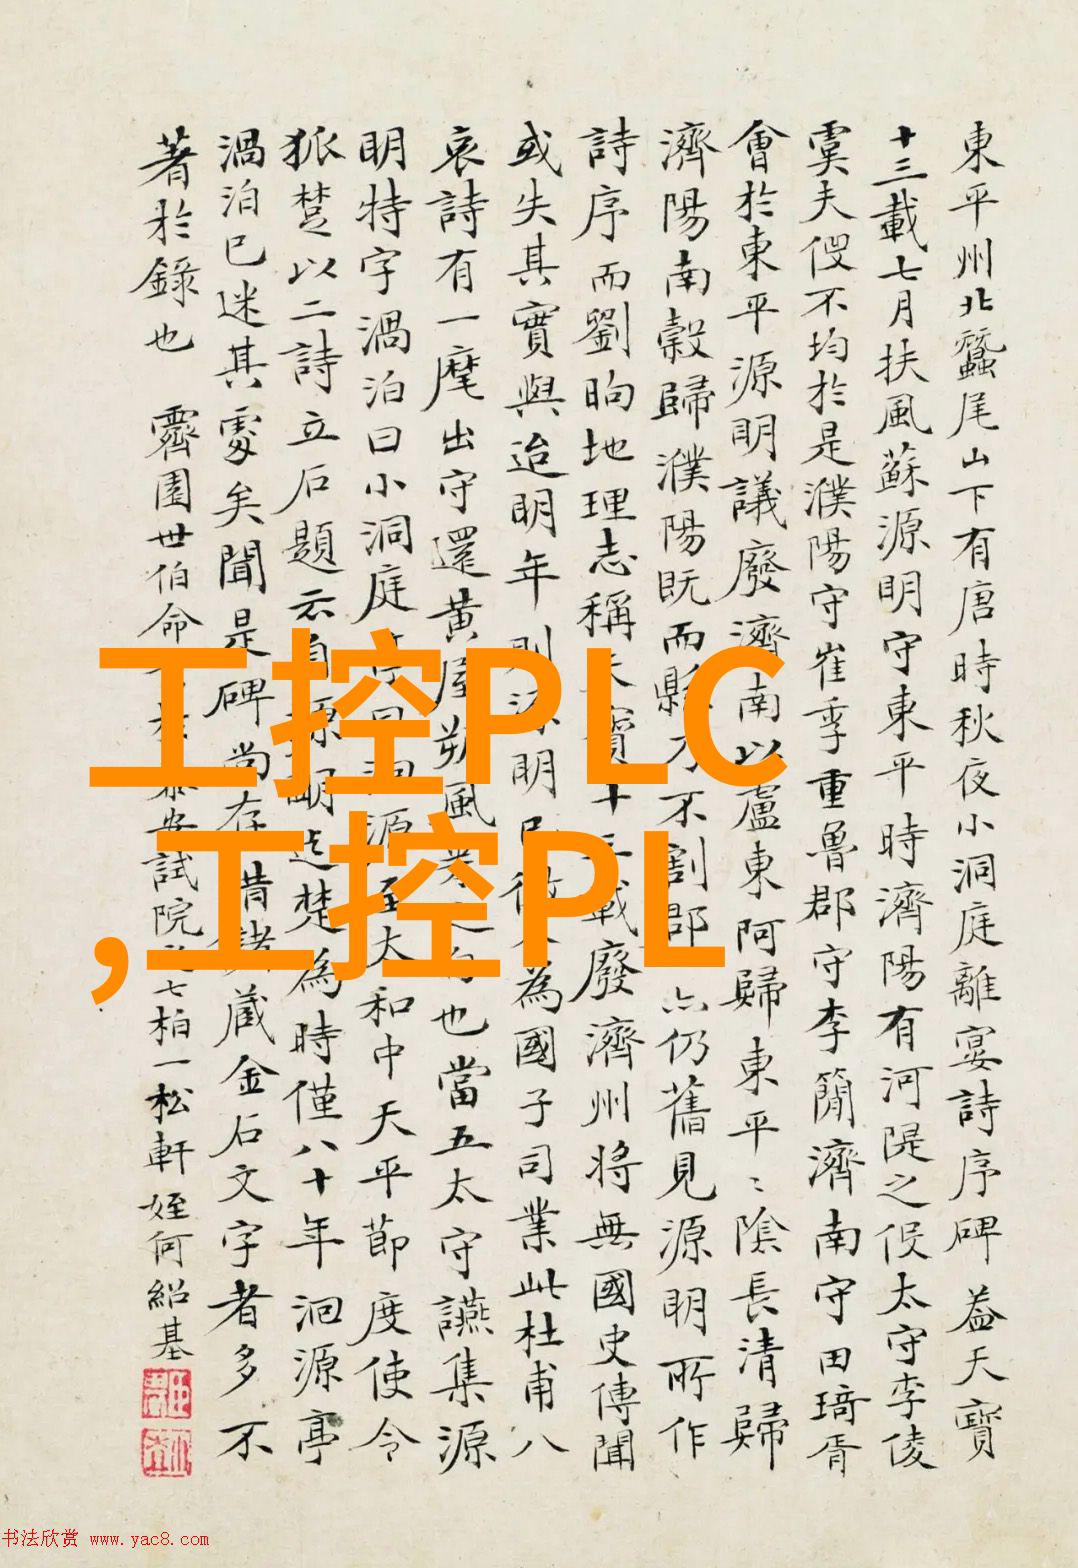 東平州北蠶尾山下有唐時秋夜小洞庭離宴詩序碑蓋天寶
十三載七月扶風蘇源明守東平時濟陽有河隄之役太守李倰
虞夫役不均於是濮陽守崔季重魯郡守李簡濟南守田琦胥
會於東平源明議廢濟南以盧東阿歸東平〻陰長清歸
濟陽南穀歸濮陽既而縣乃不割郡亦仍舊見源明所作
詩序而劉昫地理志稱天寶十三載廢濟州將無國史傳聞
或失其實與迨明年則源明已徵入為國子司業此杜甫八
哀詩有一麾出守還黃屋朔風也當五太守讌集源
明特字渦泊曰小洞庭源至大和中天平節度使令
狐楚以二詩立石題云自源明迄楚為時僅八十年洄源亭
渦泊已迷其處矣聞是碑尚存昔藏金石文字者多不
著於錄也
霽園世伯命試院七柏一松軒姪何紹基
工控PLC
,工控PL
书法欣赏 www.yac8.com